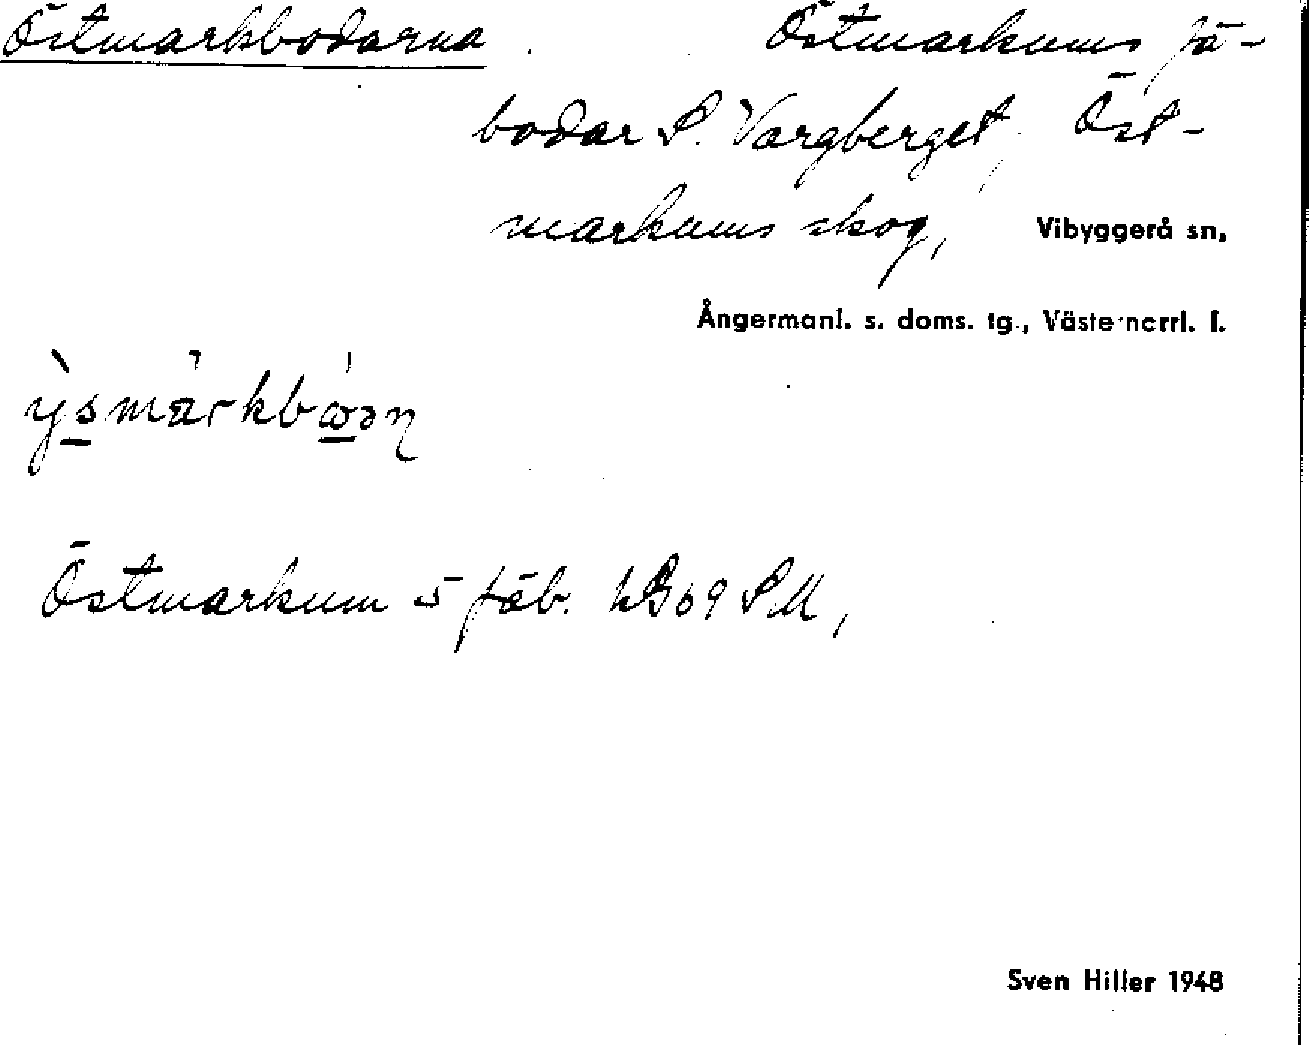 Östmarkbodarna. Östmarkums fä-
bodar S. Vargberget, Öst-
markums skog, Vibyggerå sn,
Ångermanl. s. doms. tg., Västernorrl. l.
Östmarkum 5 fäb. 69 SM,
Sven Hiller 1948